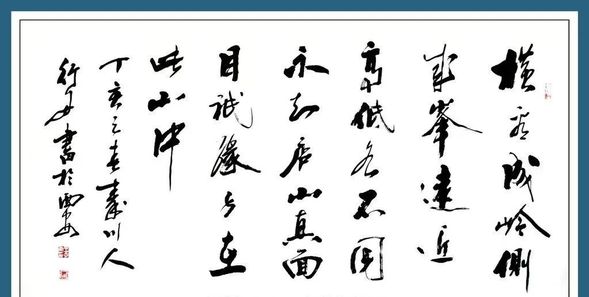 橫看成岭側
成峯遠近
高低各不同
不知庐山真面
目祇缘身在
此山中
丁亥之春秦川人
書於西安